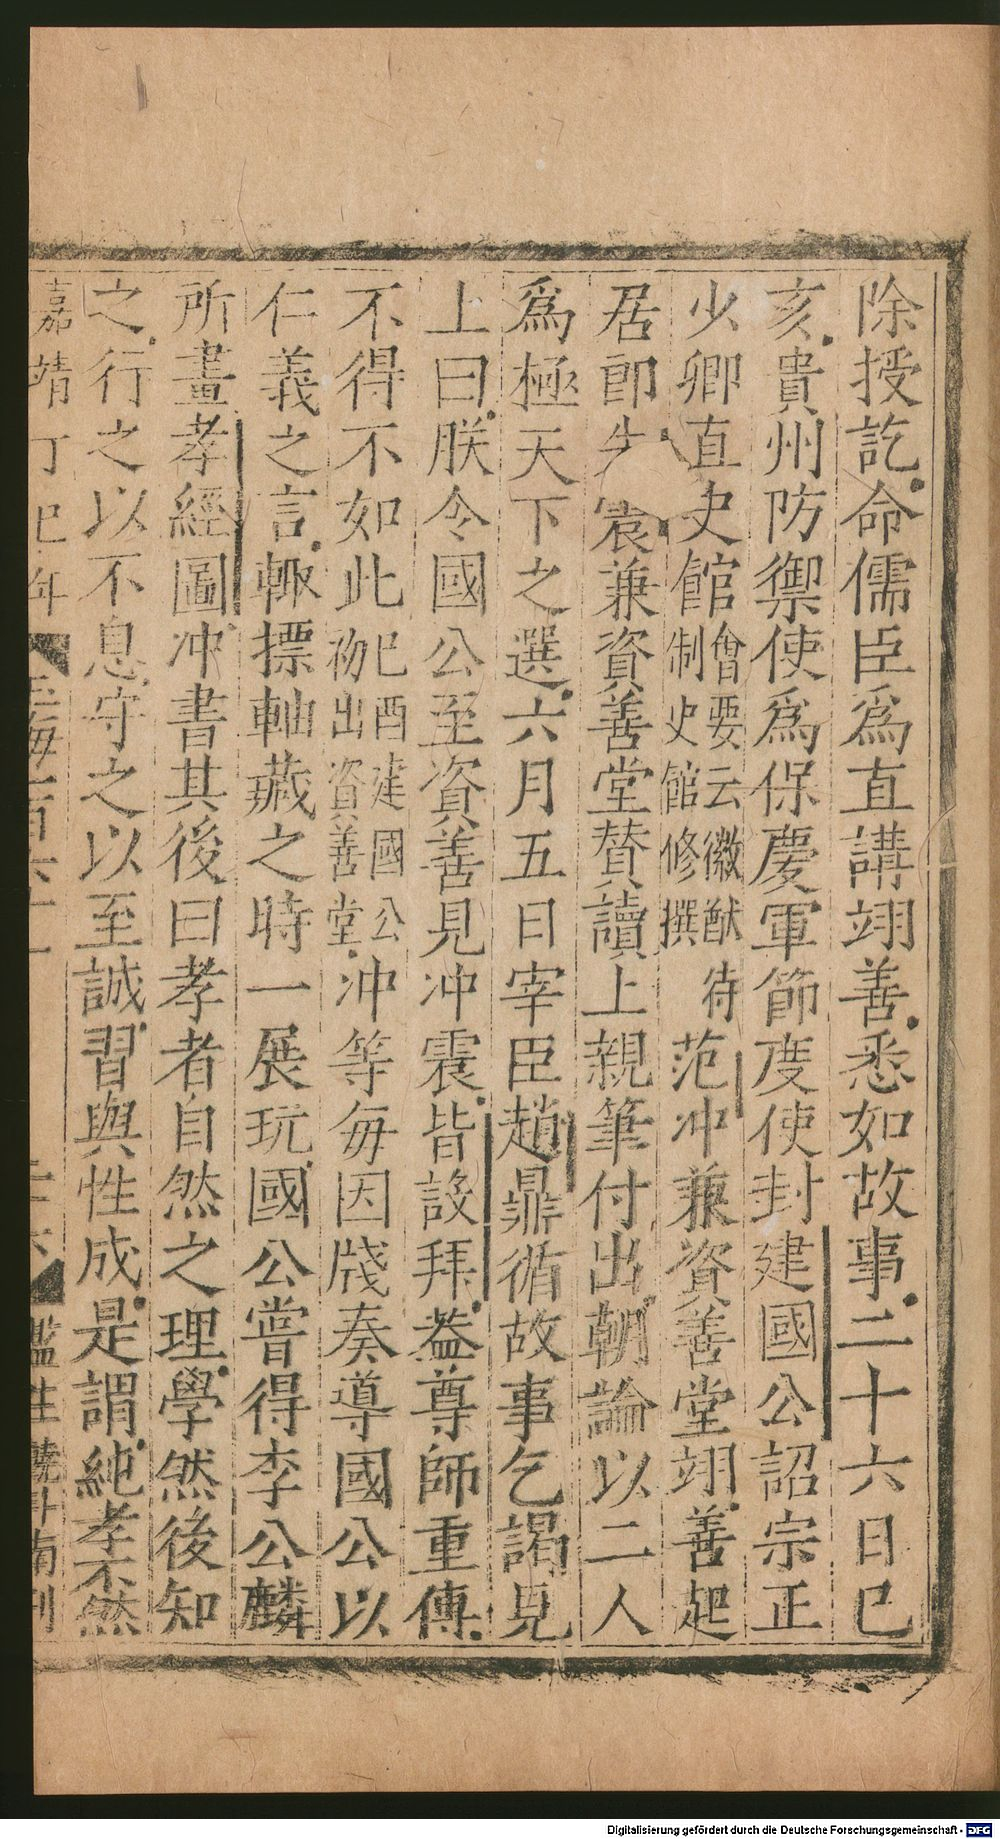 除授訖命儒臣爲直講翊善悉如故事二十六日巳
亥貴州防禦使爲保慶軍節度使封建國公詔宗正
少卿直史館會要云徽猷待制史館修撰范冲兼資善堂翊善起
居郎朱震兼資善堂贊讀上親筆付出朝論以二人
爲極天下之選六月五日宰臣趙鼎循故事乞謁見
上曰朕令國公至資善見冲震皆設拜葢尊師重傳
不得不如此巳酉建國公初出資善堂冲等毎因牋奏導國公以
仁義之言輙摽軸藏之時一展玩國公嘗得李公麟
所畫孝經圖冲書其後曰孝者自然之理學然後知
之行之以不息守之以至誠習與性成是謂純孝不然
嘉靖丁巳年 玉海一百六十一 二十六 監生 刊
Digitalisierung gefördert durch die Deutsche Forschungsgemeinschaft - DFG